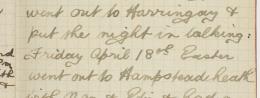 went out to Harringay &
put the night in talking:
Friday April 18th Easter
went out to Hampstead heath
with &